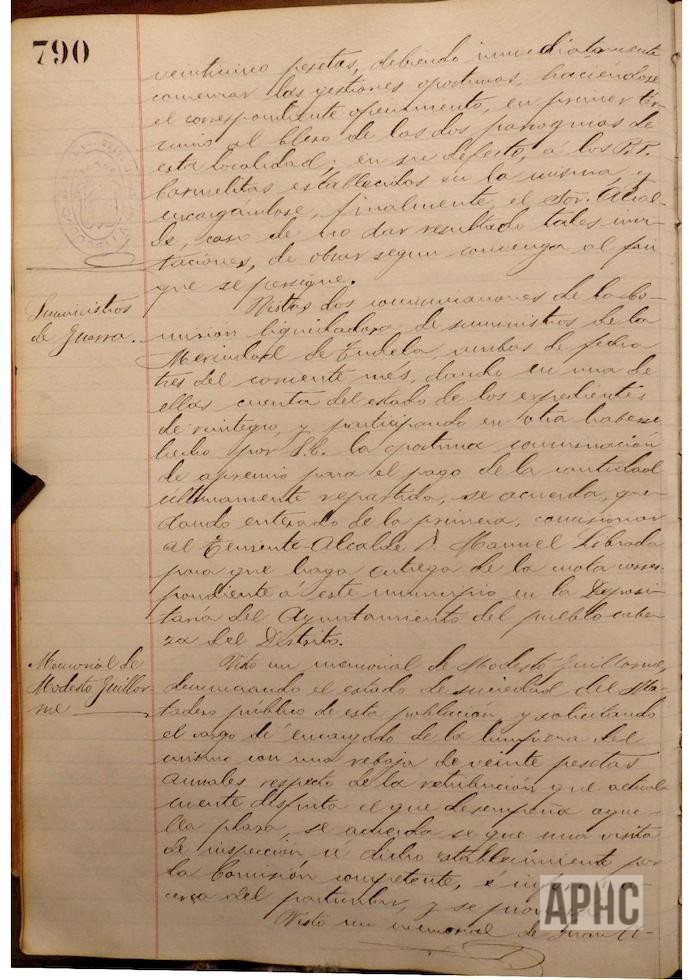 790
veinticinco pesetas, debiendo inmediatamente
comenzar las gestiones oportunas, haciéndose
el correspondiente ofrecimiento, en primer tér-
mino al clero de las dos parroquias de
esta localidad; en su defecto, á los P.P.
Carmelitas establecidos en la misma y
encargándose, finalmente, el Sor. Alcal-
de, caso de no dar resultado tales invi-
taciones, de obrar segun convenga al fin
que se persigue.
Suministros
de Guerra.
Vistas dos comunicaciones de la Co-
mision liquidadora de suministros de la
Merindad de Tudela, ambas de fecha
tres del corriente mes, dando en una de
ellas cuenta del estado de los expedientes
de reintegro, y participando en otra haberse
hecho por S.E. la oportuna conminacion
de apremio para el pago de la cantidad
últimamente repartida, se acuerda, que-
dando enterado de la primera, comisionar
al Teniente-Alcalde D. Manuel Librada
para que haga entrega de la cuota corres-
pondiente a este municipio en la Deposi-
taría del Ayuntamiento del pueblo cabe-
za del Distrito.
Memorial de
Modesto Guillor-
me
Visto un memorial de Modesto Guillorme,
denunciando el estado de suciedad del Ma-
tadero público de esta población, y solicitando
el cargo de encargado de la limpieza del
mismo con una rebaja de veinte pesetas
anuales respecto de la retribución que actual-
mente disfruta el que desempeña aque-
lla plaza, se acuerda se gire una visita
de inspección á dicho establecimiento por
la Comisión competente, é informe a-
cerca del particular, y se
Visto un memorial de Juan
APHC